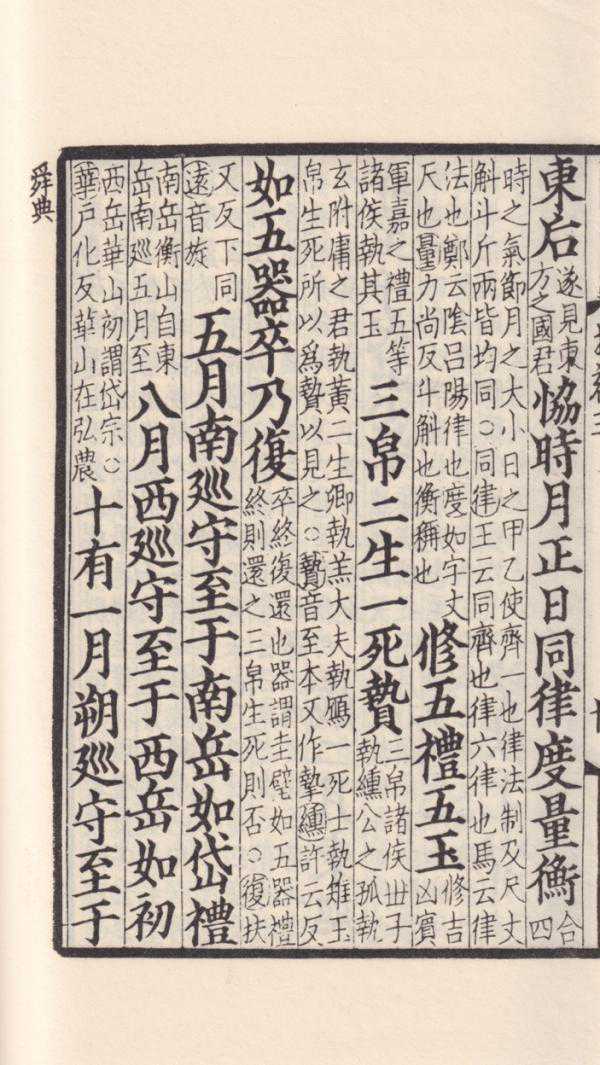 東后遂見東方之國君恊時月正日同律度量衡合四
時之氣節月之大小日之甲乙使齊一也律法制及尺丈
斛斗斤兩皆均同○同律王云同齊也律六律也馬云律
法也鄭云陰呂陽律也度如字丈
尺也量力尚反斗斛也衡稱也
修五禮五玉修吉凶賓
軍嘉之禮五等
諸侯執其玉
三帛二生一死贄三帛諸侯世子執纁公之孤執
玄附庸之君執黃二生卿執羔大夫執鴈一死士執雉玉
帛生死所以爲贄以見之○贄音至本又作摯纁許云反
如五器卒乃復卒終復還也器謂圭璧如五器禮終則還之三帛生死則否○復扶
又反下同
還音旋
五月南廵守至于南岳如岱禮
南岳衡山自東
岳南廵五月至
八月西廵守至于西岳如初
西岳華山初謂岱宗○
華戶化反華山在弘農
十有一月朔廵守至于
舜典